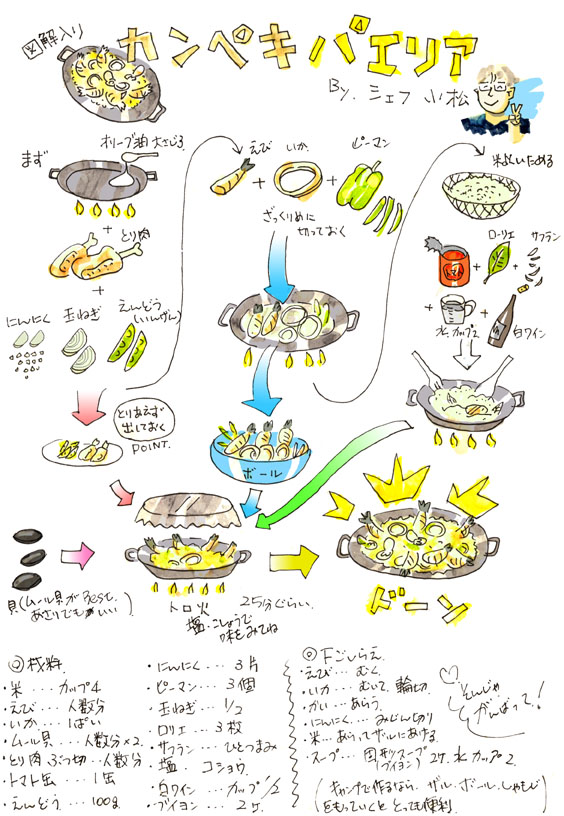 図解入り
カンペキパエリア
By. シェフ 小松
まず
オリーブ油 大さじ3
+
とり肉
+
にんにく
玉ねぎ
えんどう
(いんげん)
とりあえず
出しておく
POINT.
えび
+
いか
+
ピーマン
ざっくりめに
切っておく
ボール
米もいためる
トマト
+
ローリエ
+
サフラン
+
水、カップ2
+
白ワイン
貝(ムール貝がBest,
あさりでもいい)
トロ火
25分ぐらい。
塩・こしょうで
味をみてね
ドーン
◎材料
・米 ... カップ4
・えび ... 人数分
・いか ... 1ぱい
・ムール貝 ... 人数分×2
・とり肉ぶつ切 .. 人数分
・トマト缶 ... 1缶
・えんどう ... 100g
・にんにく ... 3片
・ピーマン ... 3個
・玉ねぎ ... 1/2
・ロリエ ... 3枚
・サフラン ... ひとつまみ
・塩、コショウ
・白ワイン ... カップ1/2
・ブイヨン ... 2ケ
◎下ごしらえ
・えび ... むく。
・いか ... むいて、輪切
・かい ... あらう。
・にんにく ... みじん切り
・米 ... あらってザルにあげる。
・スープ ... 固形スープ(ブイヨン) 2ケ、水カップ2
(キャンプで作るなら、ザル・ボール・しゃもじ
をもっていくととっても便利)
そんじゃ
がんばって!